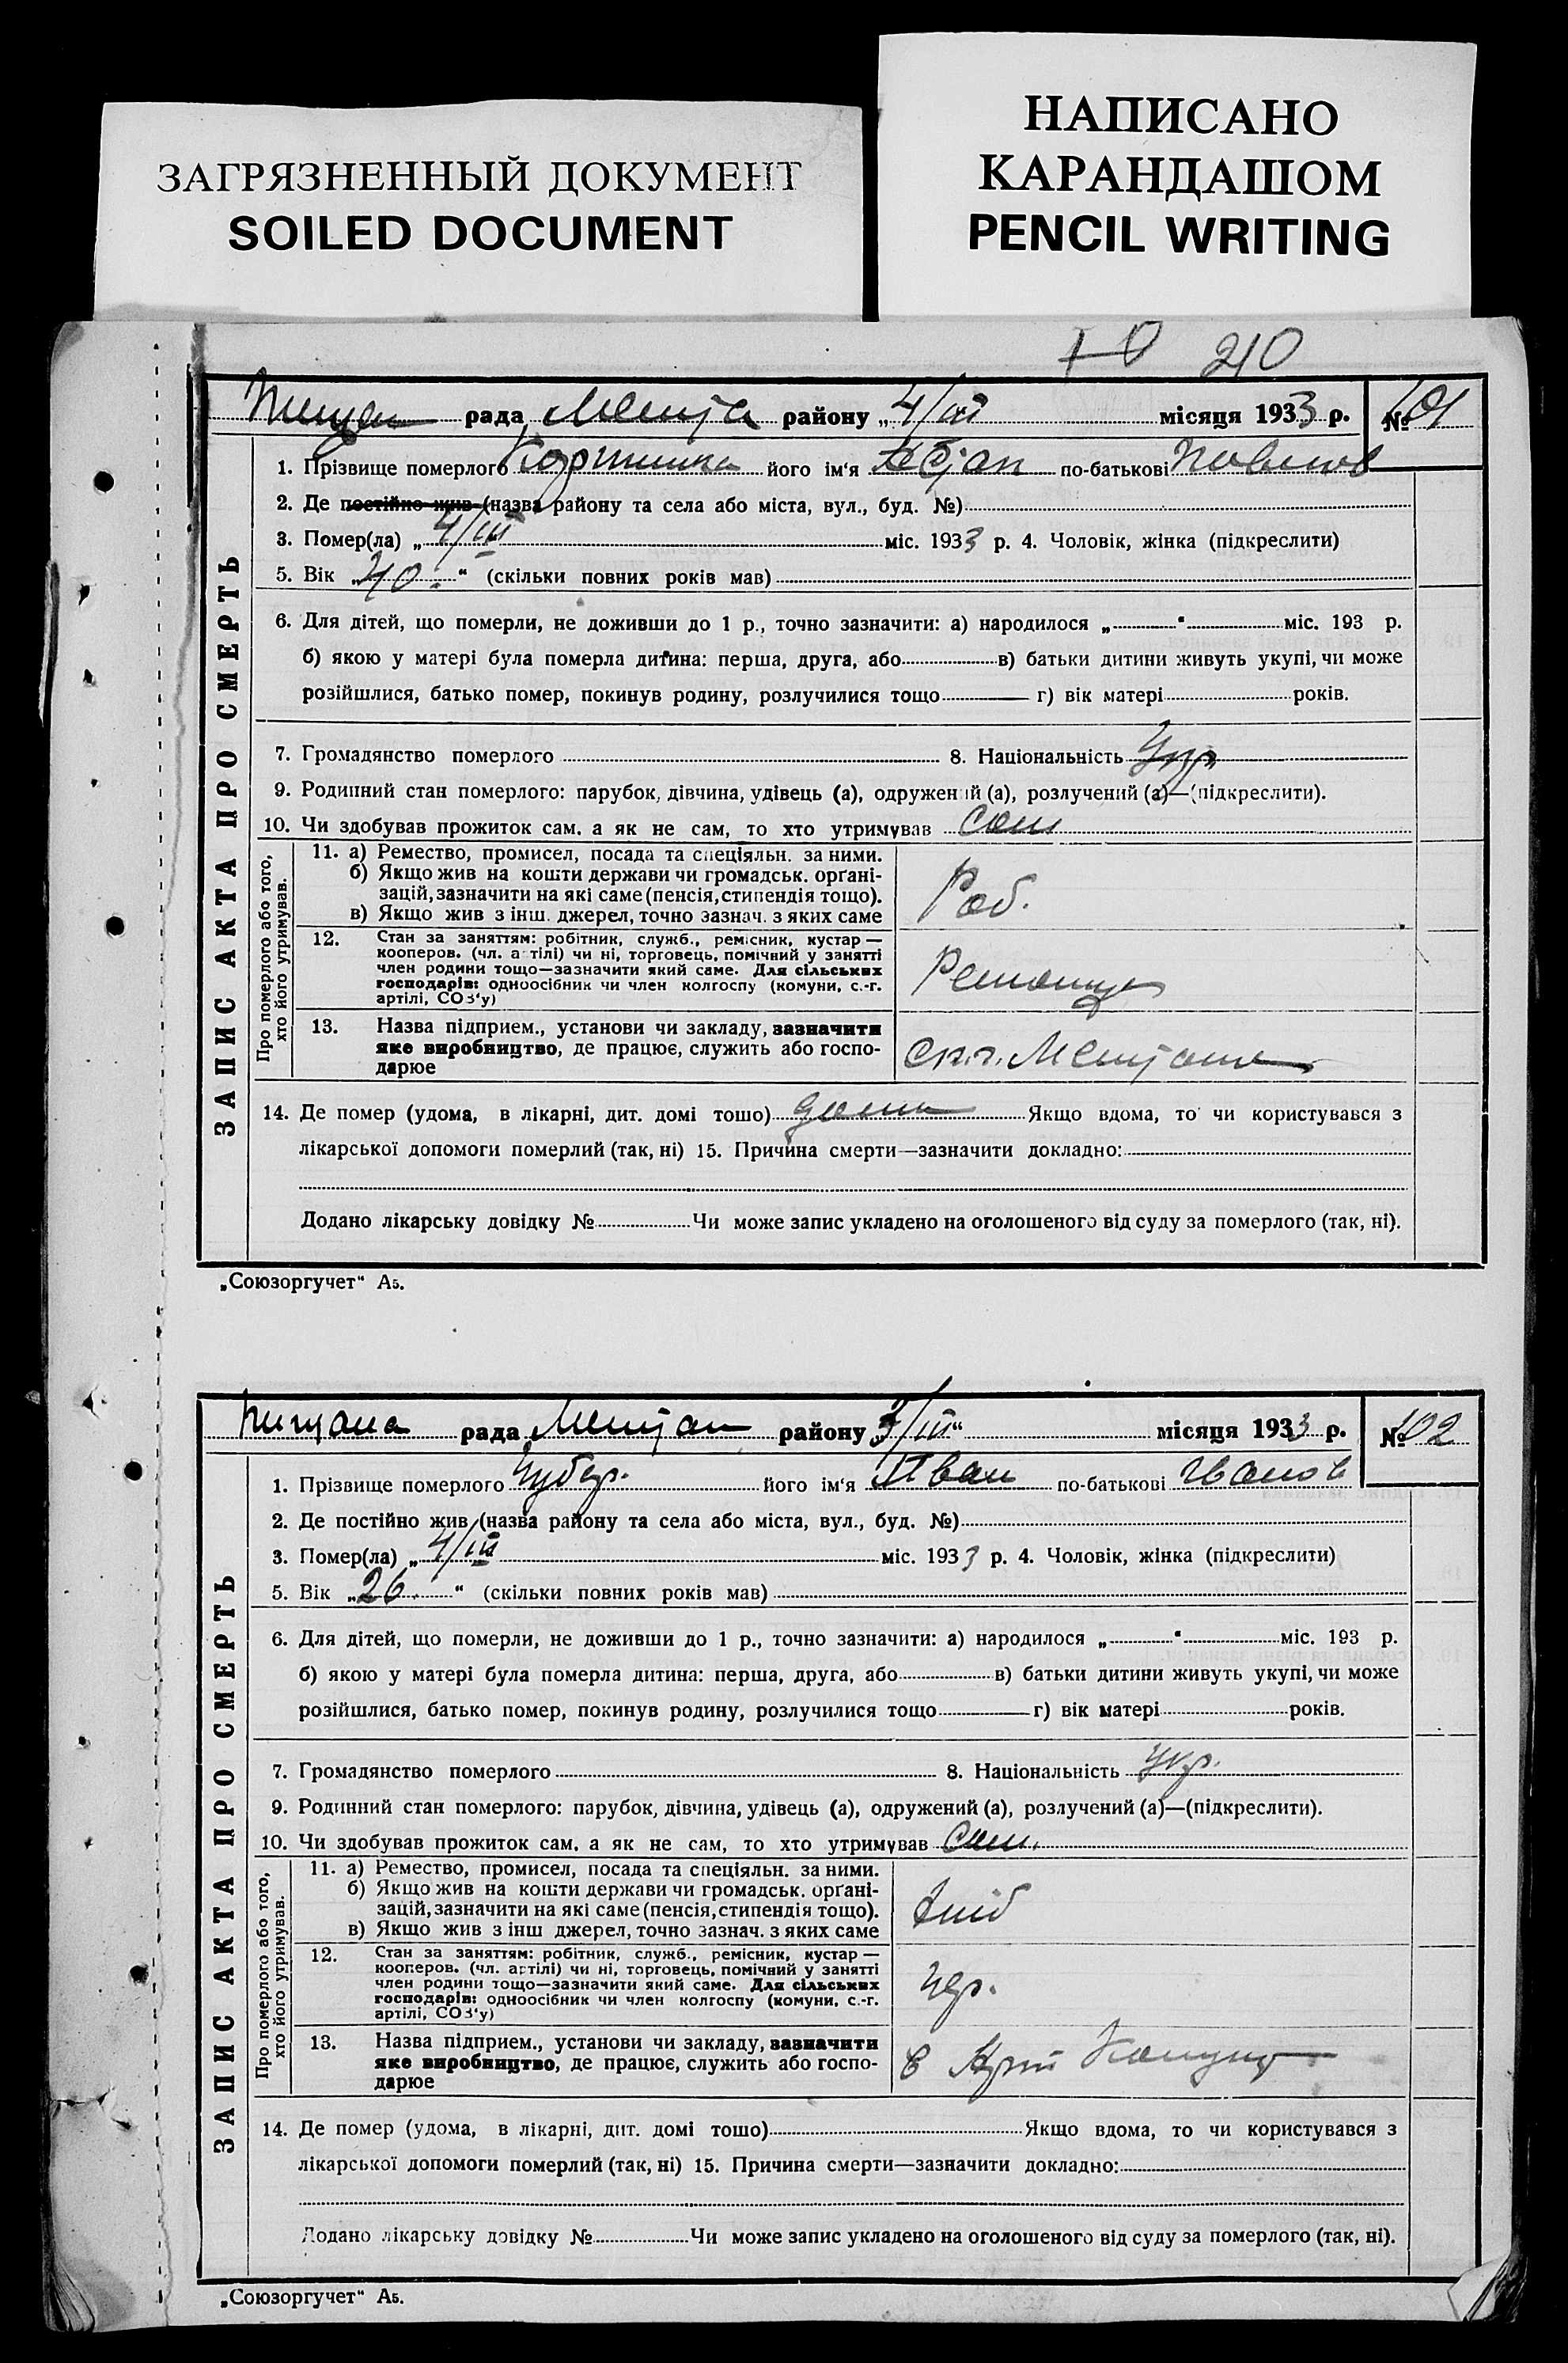 НАПИСАНО
КАРАНДАШОМ
PENCIL WRITING
ЗАГРЯЗНЕННЫЙ ДОКУМЕНТ
SOILED DOCUMENT
210
рада району „4/III місяця 1933 р. № 101
1. Прізвище померлого його ім'я по-батькові
2. Де постійно жив (назва району та села або міста, вул., буд. №)
3. Помер(ла) „4/III міс. 1933 р. 4. Чоловік, жінка (підкреслити)
5. Вік „40“ (скільки повних років мав)
6. Для дітей, що померли, не доживши до 1 р., точно зазначити: а) народилося „ “ міс. 193 р.
б) якою у матері була померла дитина: перша, друга, або в) батьки дитини живуть укупі, чи може
розійшлися, батько помер, покинув родину, розлучилися тощо г) вік матері років.
7. Громадянство померлого 8. Національність Укр
9. Родинний стан померлого: парубок, дівчина, удівець (а), одружений (а), розлучений (а)—(підкреслити).
10. Чи здобував прожиток сам, а як не сам, то хто утримував Сам
ЗАПИС АКТА ПРО СМЕРТЬ
Про померлого або того,
хто його утримував.
11. а) Ремество, промисел, посада та спеціяльн. за ними.
б) Якщо жив на кошти держави чи громадськ. орґані-
зацій, зазначити на які саме (пенсія, стипендія тощо).
в) Якщо жив з інш. джерел, точно зазнач. з яких саме
Роб.
12. Стан за заняттям: робітник, служб., ремісник, кустар —
кооперов. (чл. артілі) чи ні, торговець, помічний у занятті
член родини тощо—зазначити який саме. Для сільських
господарів: одноосібник чи член колгоспу (комуни, с.-г.
артілі, СОЗ'у)
13. Назва підприєм., установи чи закладу, зазначити
яке виробництво, де працює, служить або госпо-
дарює
14. Де помер (удома, в лікарні, дит. домі тощо) дома Якщо вдома, то чи користувався з
лікарської допомоги померлий (так, ні) 15. Причина смерти—зазначити докладно:
Додано лікарську довідку № Чи може запис укладено на оголошеного від суду за померлого (так, ні).
„Союзоргучет“ А5.
рада району /III“ місяця 1933 р. № 102
1. Прізвище померлого його ім'я Іван по-батькові Іванов
2. Де постійно жив (назва району та села або міста, вул., буд. №)
3. Помер(ла) „4/III міс. 1933 р. 4. Чоловік, жінка (підкреслити)
5. Вік „26.“ (скільки повних років мав)
6. Для дітей, що померли, не доживши до 1 р., точно зазначити: а) народилося „ “ міс. 193 р.
б) якою у матері була померла дитина: перша, друга, або в) батьки дитини живуть укупі, чи може
розійшлися, батько помер, покинув родину, розлучилися тощо г) вік матері років.
7. Громадянство померлого 8. Національність Укр.
9. Родинний стан померлого: парубок, дівчина, удівець (а), одружений (а), розлучений (а)—(підкреслити).
10. Чи здобував прожиток сам, а як не сам, то хто утримував Сам.
ЗАПИС АКТА ПРО СМЕРТЬ
Про померлого або того,
хто його утримував.
11. а) Ремество, промисел, посада та спеціяльн. за ними.
б) Якщо жив на кошти держави чи громадськ. орґані-
зацій, зазначити на які саме (пенсія, стипендія тощо).
в) Якщо жив з інш джерел, точно зазнач. з яких саме
12. Стан за заняттям: робітник, служб., ремісник, кустар —
кооперов. (чл. артілі) чи ні, торговець, помічний у занятті
член родини тощо—зазначити який саме. Для сільських
господарів: одноосібник чи член колгоспу (комуни, с.-г.
артілі, СОЗ'у)
13. Назва підприєм., установи чи закладу, зазначити
яке виробництво, де працює, служить або госпо-
дарює
в
14. Де помер (удома, в лікарні, дит. домі тощо) Якщо вдома, то чи користувався з
лікарської допомоги померлий (так, ні) 15. Причина смерти—зазначити докладно:
Додано лікарську довідку № Чи може запис укладено на оголошеного від суду за померлого (так, ні).
„Союзоргучет“ А5.